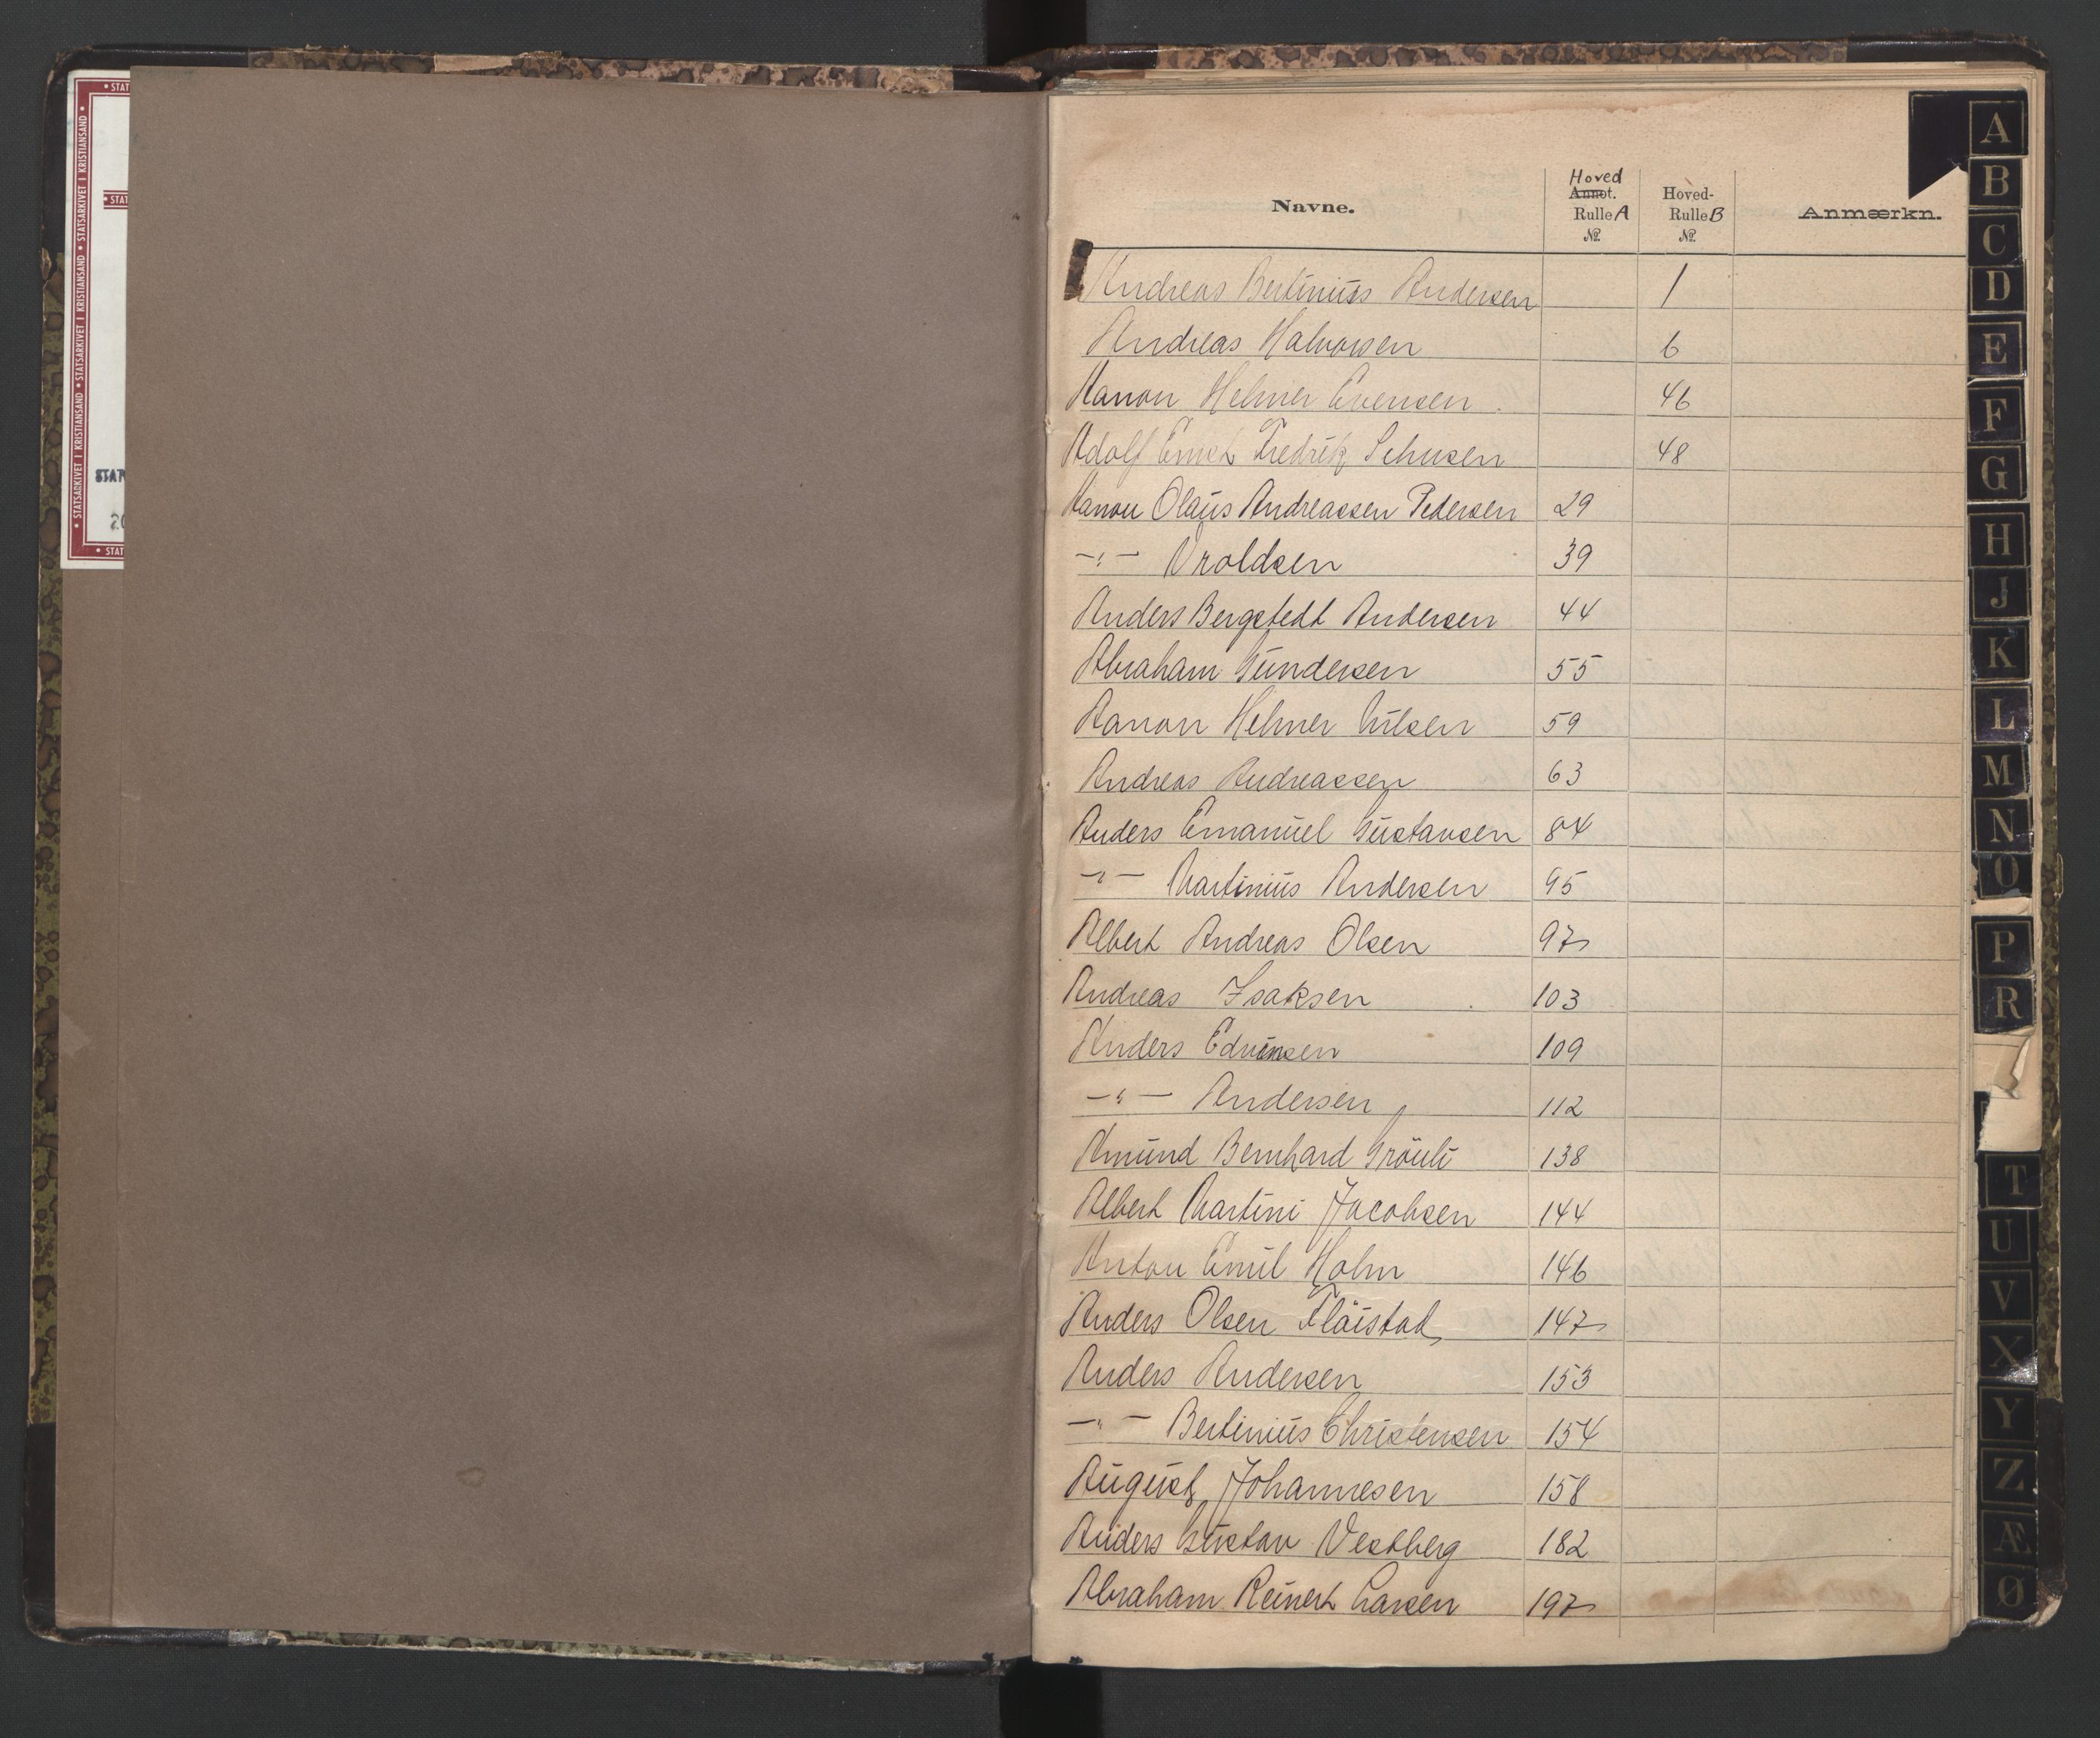 • STATSARKIVET I KRISTIANSAND • STATSARKIVET I KRISTIANSAND • STATSARKIVET I KRISTIANSAND •
Navne.
Hoved
Annot.
Rulle A
№
Hoved-
Rulle B
№
Anmærkn.
Andreas Bertinius Andersen 1
Andreas Halvorsen 6
Aanon Helmer Evensen 46
Adolf Ernst Fredrik 48
Aanon Olaus Andreassen Pedersen 29
-"- Vroldsen 39
Anders Bergstedt Andersen 44
Abraham Gundersen 55
Aanon Helmer Nilsen 59
Andreas Andreassen 63
Anders Emanuel Gustavsen 84
-"- Martinius Andersen 95
Albert Andreas Olsen 97
Andreas Isaksen 103
Anders Edvinsen 109
-"- Andersen 112
Amund Bernhard 138
Albert Martini Jacobsen 144
Anton Emil Holm 146
Anders Olsen Fløistad 147
Anders Andersen 153
-"- Bertinius Christensen 154
August Johannesen 158
Anders Gustav Vestberg 182
Abraham Reinert Larsen 197
A
B
C
D
E
F
G
H
J
K
L
M
N
O
P
R
T
U
V
X
Y
Z
Æ
Ø